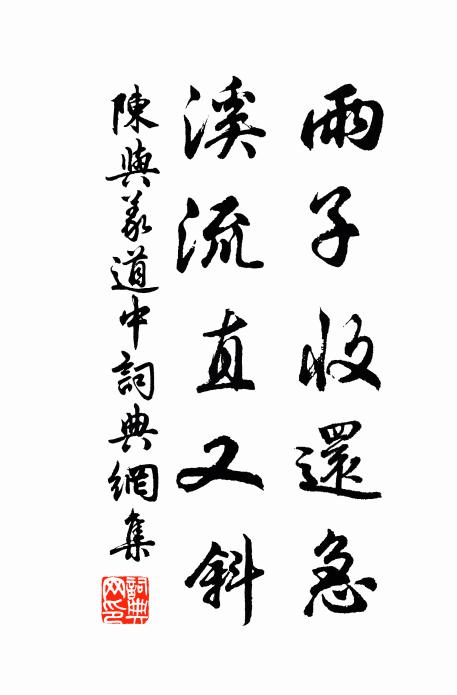 雨子收還急
溪流直又斜
陳與義道中詞典網集
詞典網印